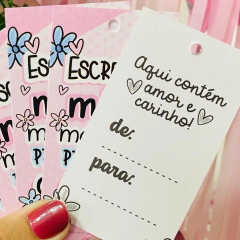 Escre
Aqui contém
amor e
carinho!
de:
para: